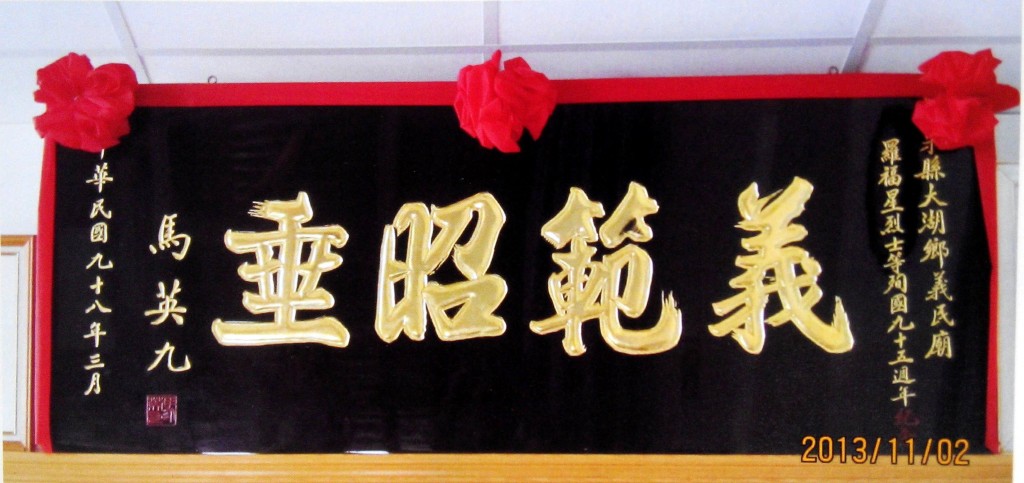 縣大湖鄉義民廟
羅福星烈士等殉國九十五週年紀
義範昭垂
馬英九
中華民國九十八年三月
2013/11/02